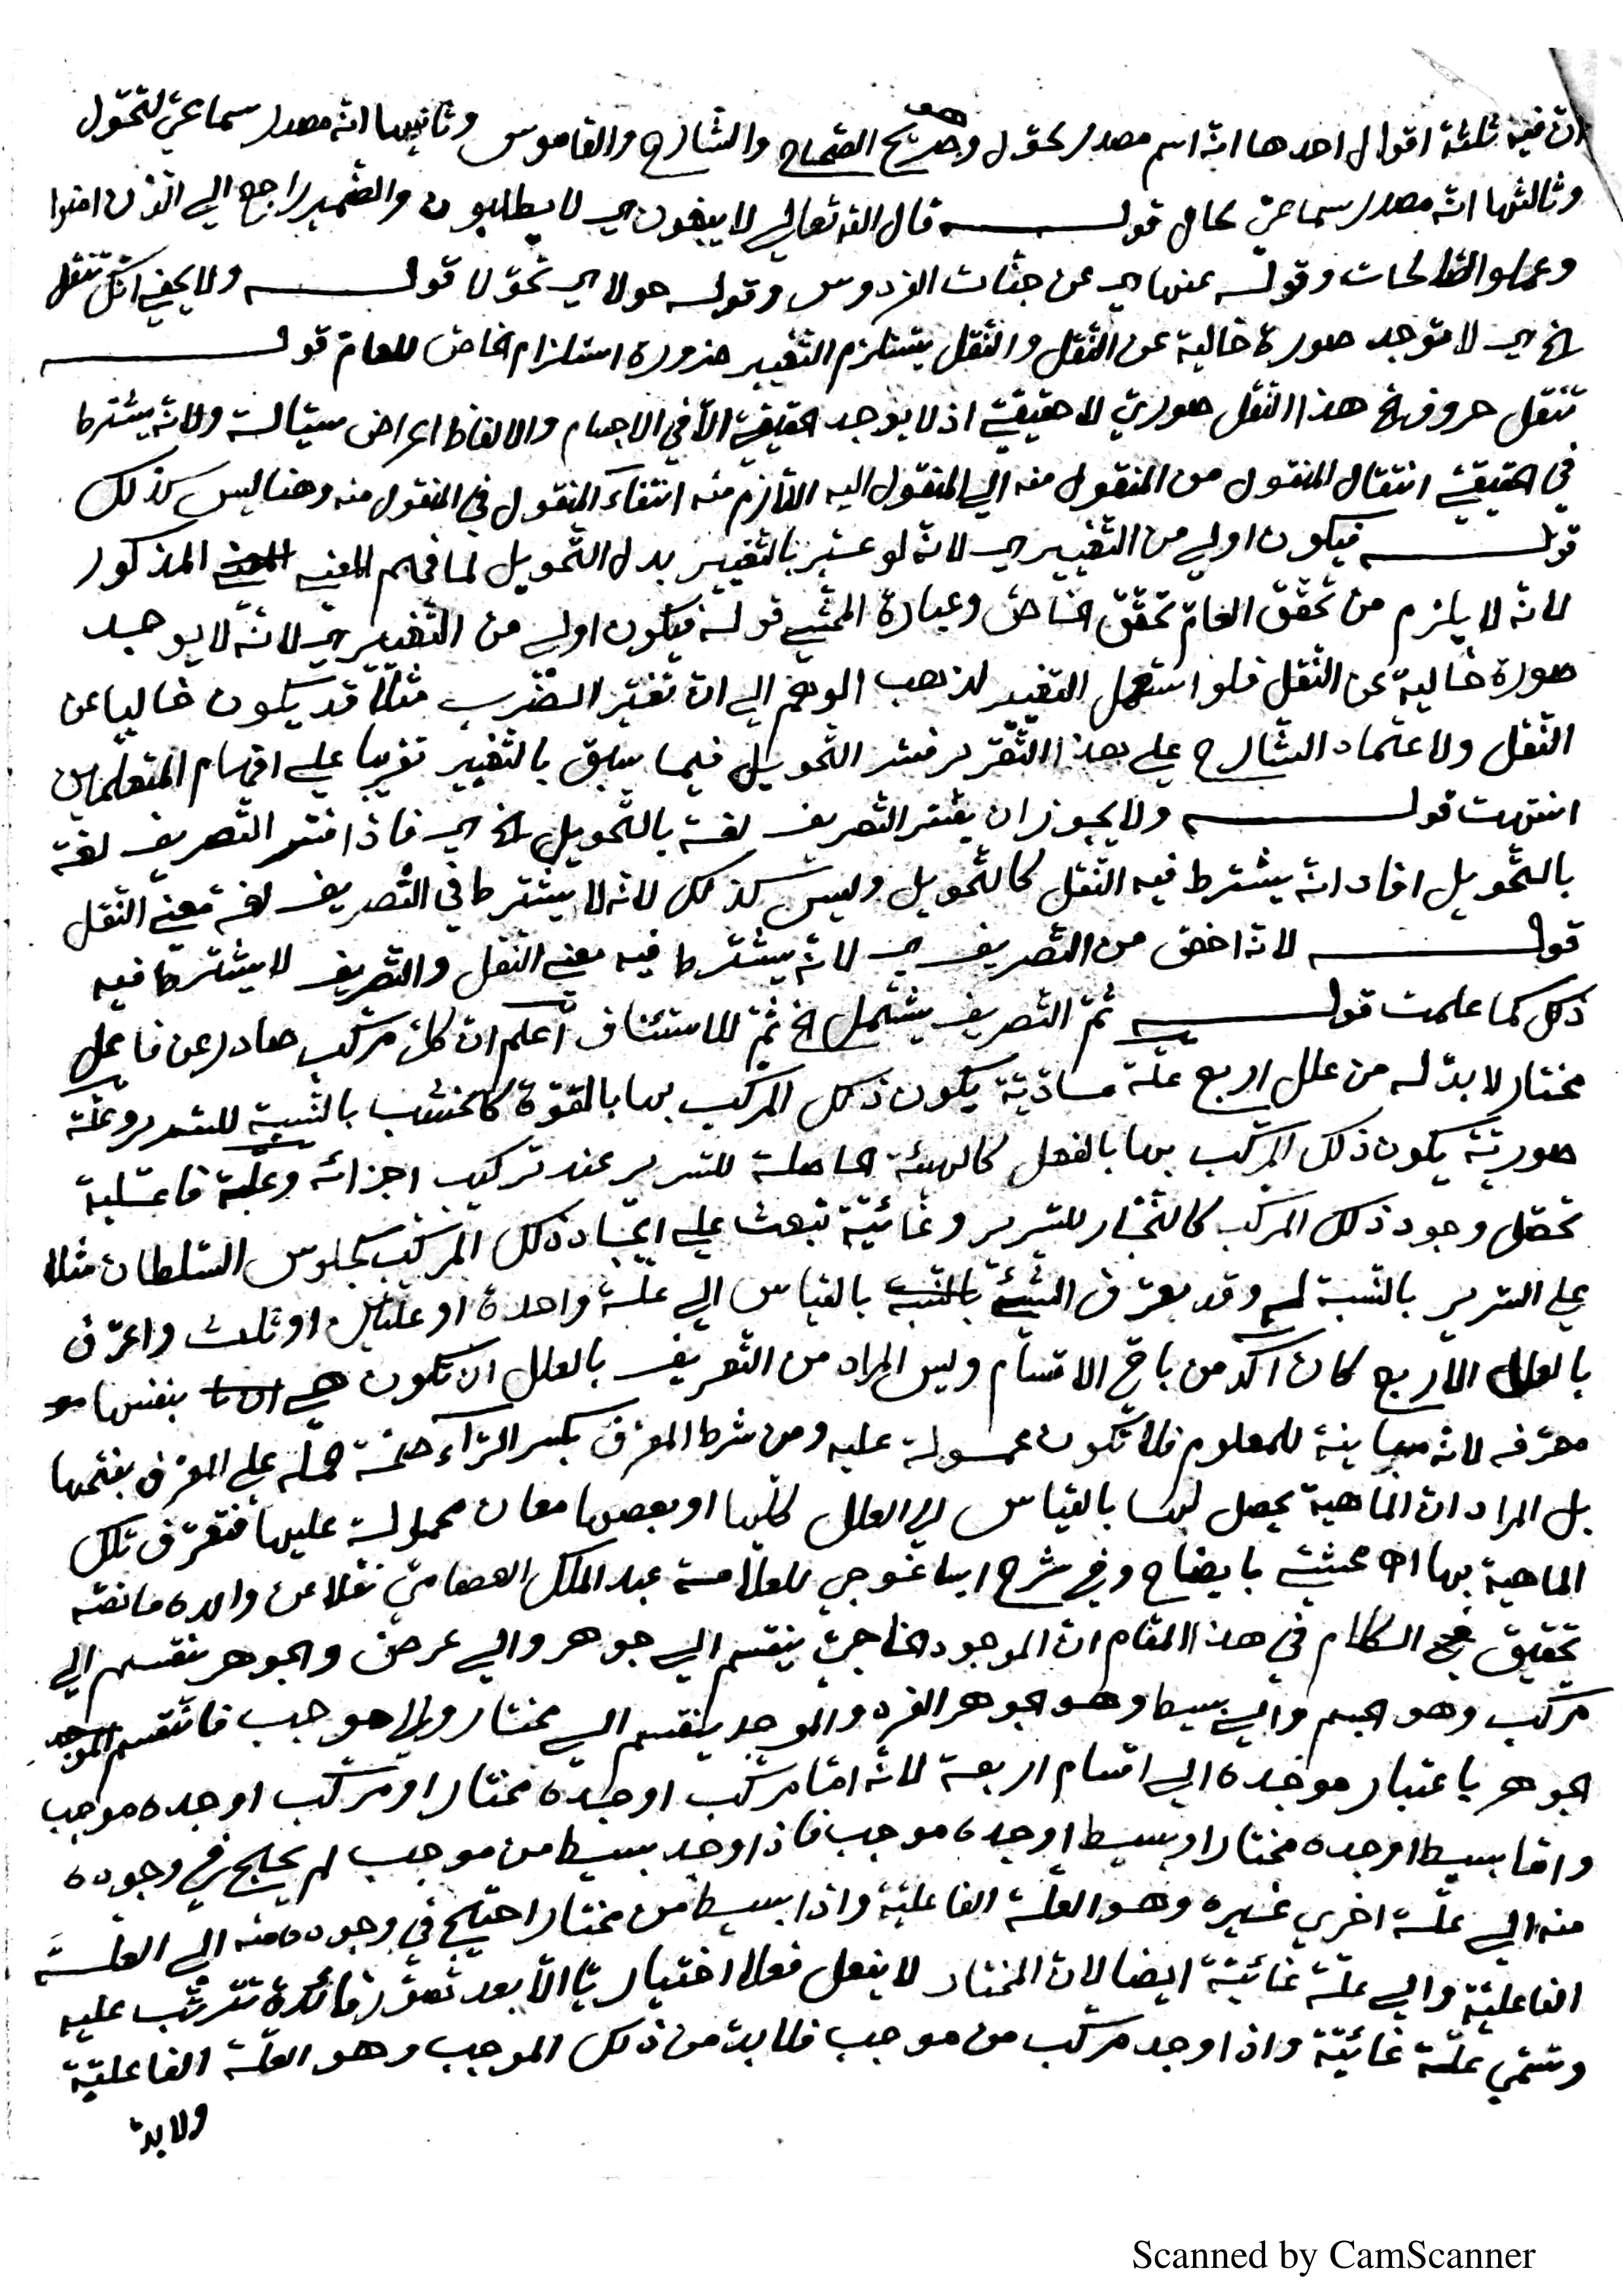 ان فيه ثلثة اقوال احدها انه اسم مصدر لحول وهو صريح الصحاح والشارح والقاموس وثانيها انه مصدر سماعي لتحول
وثالثها انه مصدر سماعي لحال قولــه قال الله تعالي لا يبغون اي لا يطلبون والضمير راجع الي الذين امنوا
وعملوا الصالحات وقوله عنها اي عن جنات الفردوس وقوله حولا اي تحولا قولــه ولا يخفي انك تنقل
الخ اي لا توجد صورة خالية عن النقل والنقل يستلزم التغيير ضرورة استلزام الخاص للعام قولــه
تنقل حروف الخ هذا النقل صوري لا حقيقي اذ لا يوجد الحقيقي الا في الاجسام والالفاظ اعراض سيالة ولانه يشترط
في الحقيقي انتقال المنقول من المنقول منه الي المنقول اليه اللازم منه انتفاء المنقول في المنقول منه وهنا ليس كذلك
قولــه فيكون اولي من التغيير اي لانه لو عبر بالتغيير بدل التحويل لما فهم المعني المذكور
لانه لا يلزم من تحقق العام تحقق الخاص وعبارة المحشي قوله فيكون اولي من التغيير اي لانه لا يوجد
صورة خالية عن النقل فلو استعمل التغيير لذهب الوهم الي ان تغير الضرب مثلا قد يكون خاليا عن
النقل ولاعتماد الشارح علي هذا التقرير فسر التحويل فيما سبق بالتغيير تقريبا علي افهام المتعلمين
انتهت قولــه ولا يجوز ان يفسر التصريف لغة بالتحويل الخ اي فاذا فسر التصريف لغة
بالتحويل افاد انه يشترط فيه النقل كالتحويل وليس كذلك لانه لا يشترط في التصريف لغة معني النقل
قولــه لانه اخص من التصريف اي لانه يشترط فيه معني النقل والتصريف لا يشترط فيه
ذلك كما علمت قولــه ثم التصريف يشتمل الخ ثم للاستئناف اعلم ان كل مركب صادر عن فاعل
مختار لا بد له من علل اربع علة مادية يكون ذلك المركب بها بالقوة كالخشب بالنسبة للسرير وعلة
صورية يكون ذلك المركب بها بالفعل كالهيئة الحاصلة للسرير عند تركيب اجزائه وعلة فاعلية
تحصل وجود ذلك المركب كالنجار للسرير وغائية تبعث علي ايجاد ذلك المركب كجلوس السلطان مثلا
علي السرير بالنسبة له وقد يعرف الشئ بالقياس الي علة واحدة او علتين او ثلث واعرف
بالعلل الاربع كان اكد من باقي الاقسام وليس المراد من التعريف بالعلل ان تكون هي بنفسها
معرفه لانه مباينة للمعلوم فلا تكون محمولة عليه ومن شرط المعرف بكسر الراء صحة حمله علي المعرف بفتحها
بل المراد ان الماهية يحصل لها بالقياس الي العلل كلها او بعضها معان محمولة عليها فتعرف تلك
الماهية بها اه محشي بايضاح وفي شرح ايساغوجي للعلامة عبد الملك العصامي نقلا عن والده ما نصه
تحقيق الكلام في هذا المقام ان الموجود الخارجي ينقسم الي جوهر والي عرض والجوهر ينقسم الي
مركب وهو الجسم والي بسيط وهو الجوهر الفرد والموجد ينقسم الي مختار والي موجب فانقسم
الجوهر باعتبار موجده الي اقسام اربعة لانه اما مركب اوجده مختار او مركب اوجده موجب
واما بسيط اوجده مختار او بسيط اوجده موجب فاذا وجد بسيط من موجب لم يحتج في وجوده
منه الي علة اخري غيره وهو العلة الفاعلية واذا بسيط من مختار احتيج في وجوده منه الي العلة
الفاعلية والي علة غائية ايضا لان المختار لا يفعل فعلا اختياريا الا بعد تصور فائدة تترتب عليه
وتسمي علة غائية واذا وجد مركب من موجب فلا بد من ذلك الموجب وهو العلة الفاعلية
ولا بد
Scanned by CamScanner